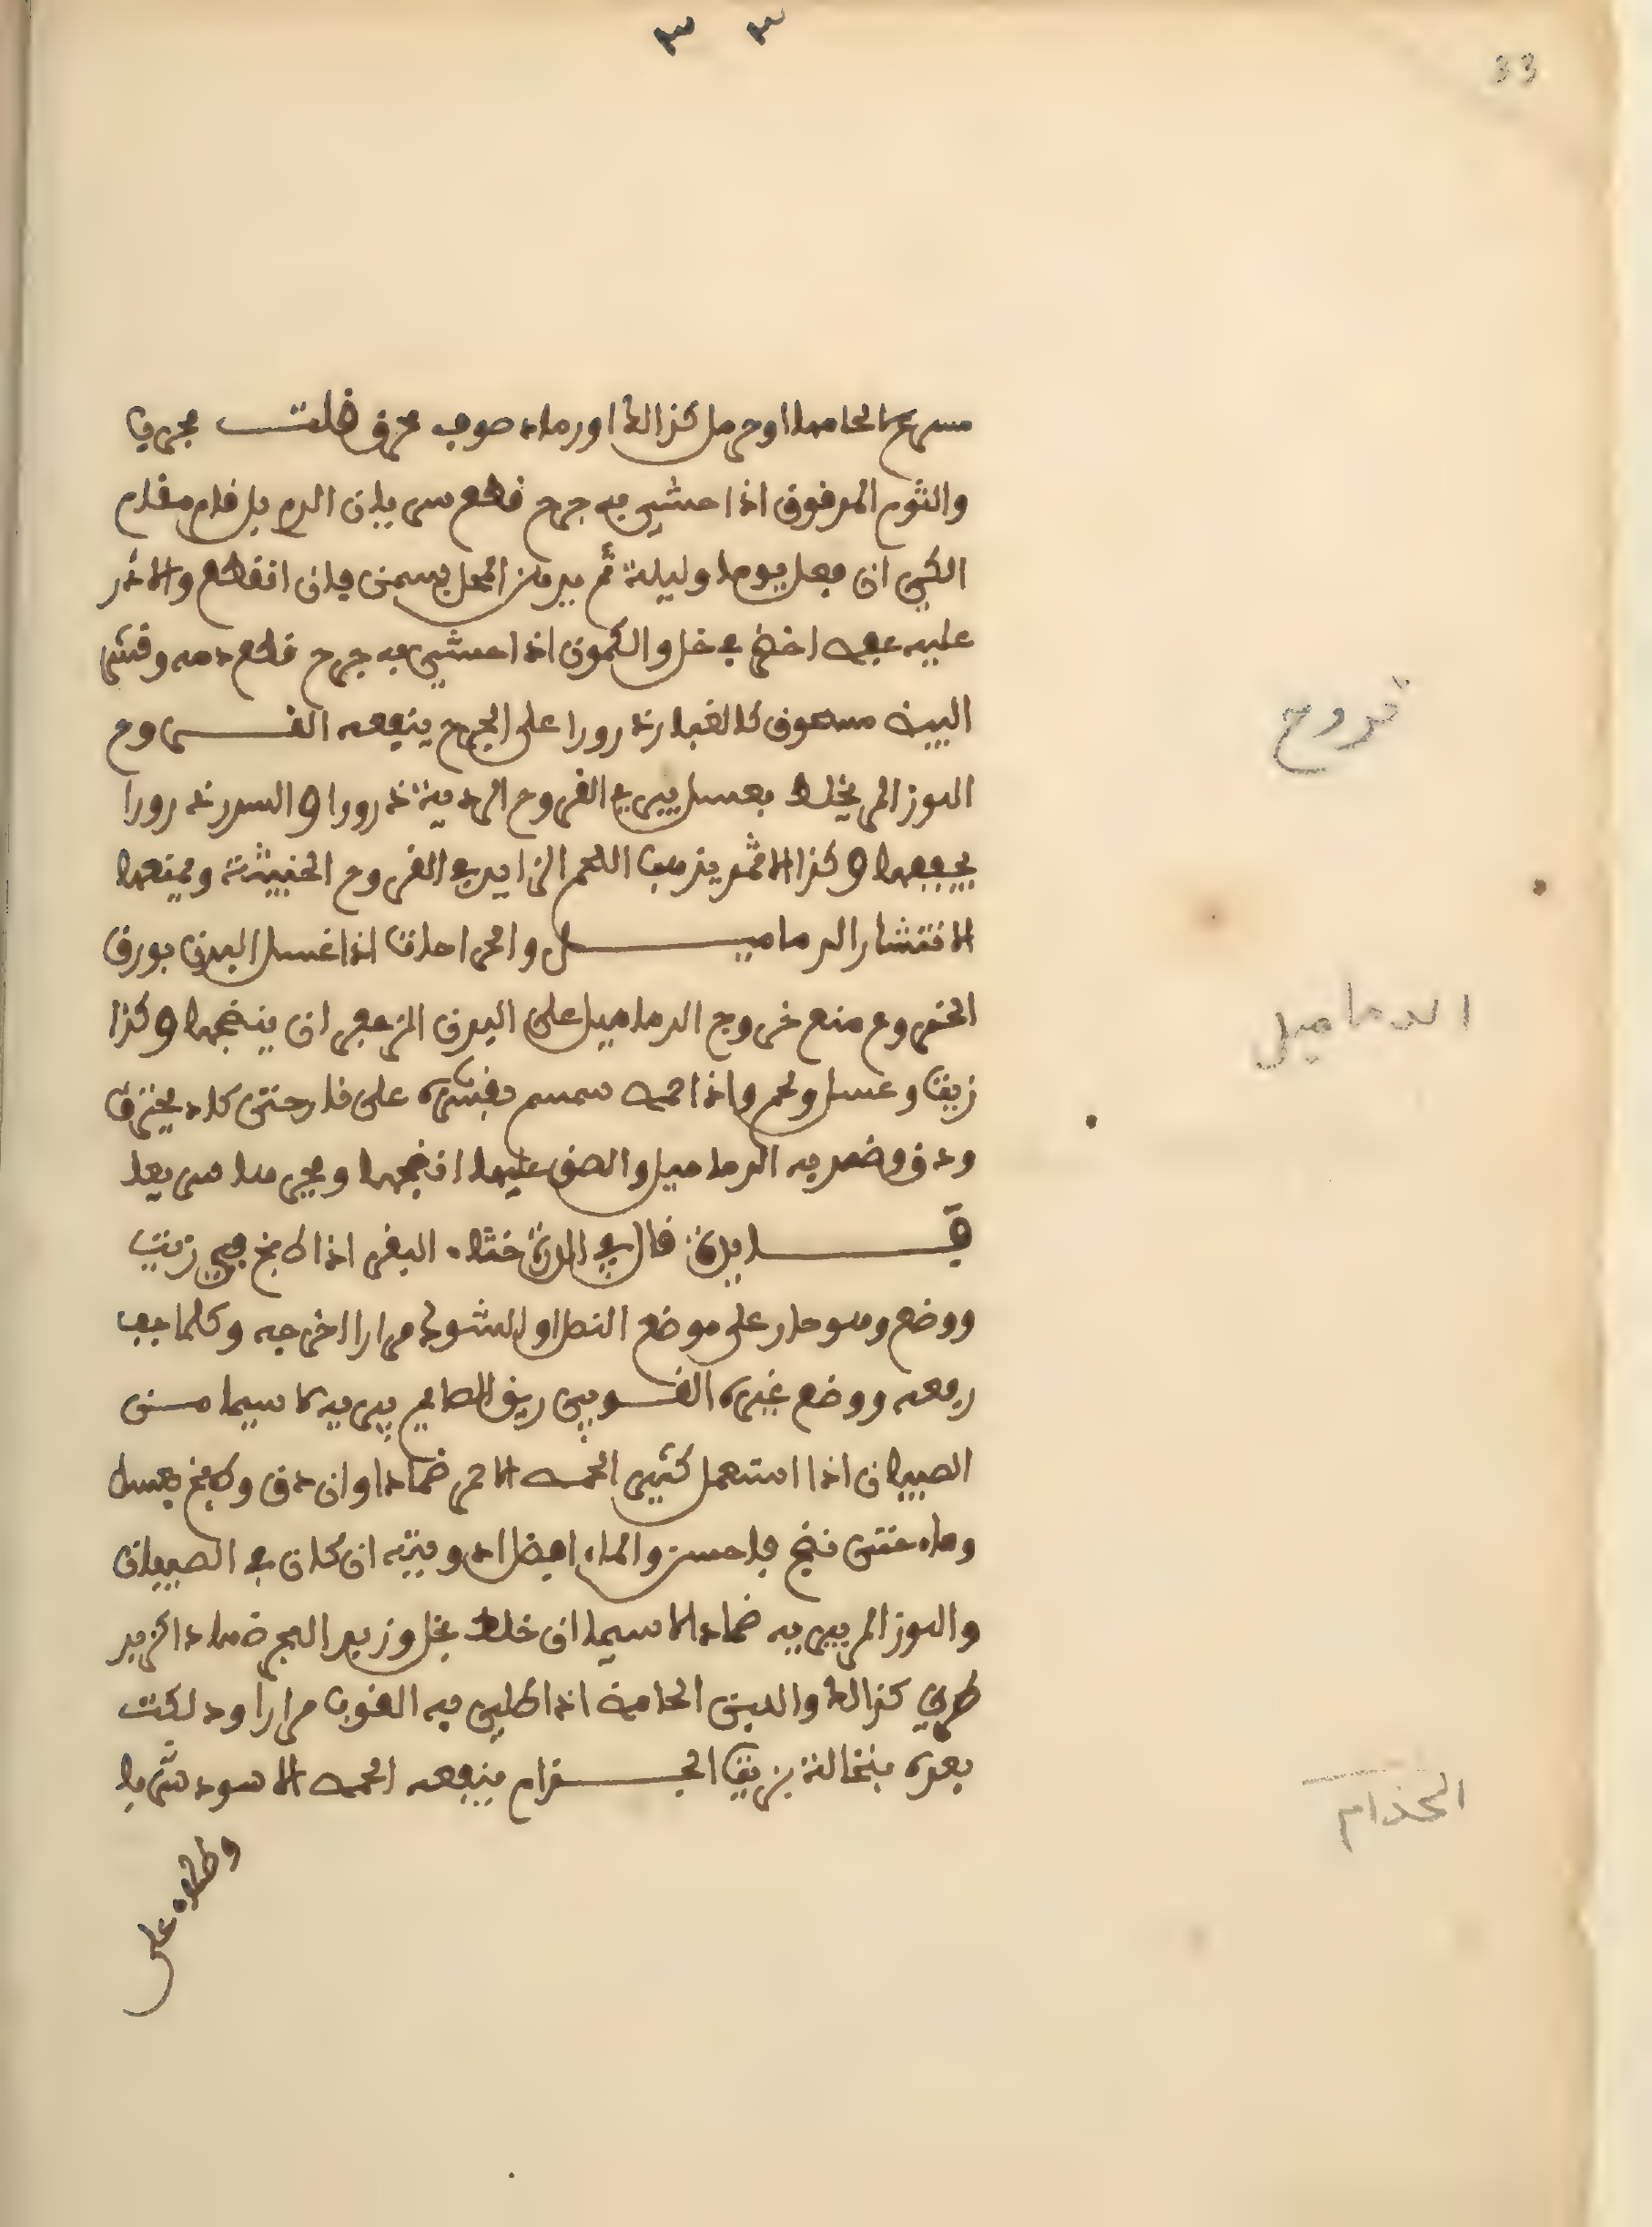 ٣ ٣
33
سريع الحامها او حرمل كذالك او رماد صوف محرق فلت مجرب
والثوم المدقوق اذا حشي به جرح قطع سريان الدم بل قام مقام
الكي ان فعل يوما وليلة ثم يدهن المحل بسمن فان انقطع والا ذر
عليه عفص اخضر بخل والكمون اذا حشي به جرح قطع دمه وقشر
البيض مسحوق كالغبار ذرورا على الجرح ينفعه القروح
اللوز المر يخلط بعسل يبرئ القروح الردية ذرورا والسدر ذرورا
يجففها وكذا الاثمد يذهب اللحم الزايد في القروح الخبيثة ويمنعها
الانتشار الدماميل وامراحات اذا غسل البدن بورق
الخروع منع خروج الدماميل على البدن الزعفران ينضجها وكذا
زيت وعسل ولحم واذا حمص سمسم بقشره على نار حتى كاد يحترق
ودق وضمد به الدماميل والصق عليها انضجها وفجرها سريعا
فايدة قال في خثاء البقر اذا طبخ في زيت
ووضع وهو حار على موضع النصل او الشوك مرارا اخرجه وكلما جف
رفعه ووضع غيره القوبى ريق الصايم يبريه لا سيما من
الصبيان اذا استعمل كثيرا الحمص الاحمر ضمادا وان دق وطبخ بعسل
وماء حتى نضج فاحسن والماء افضل ادويته ان كان في الصبيان
واللوز المر يبريه ضمادا لا سيما ان خلط بخل وزبد البحر ضمادا
طري كذالك والدبس الحامض اذا طلي به القوب مرارا ودلكت
بعده بنخالة بزيت الجذام ينفعه الحمص الاسود شربا
وطلاء على
قروح
الدماميل
الجذام